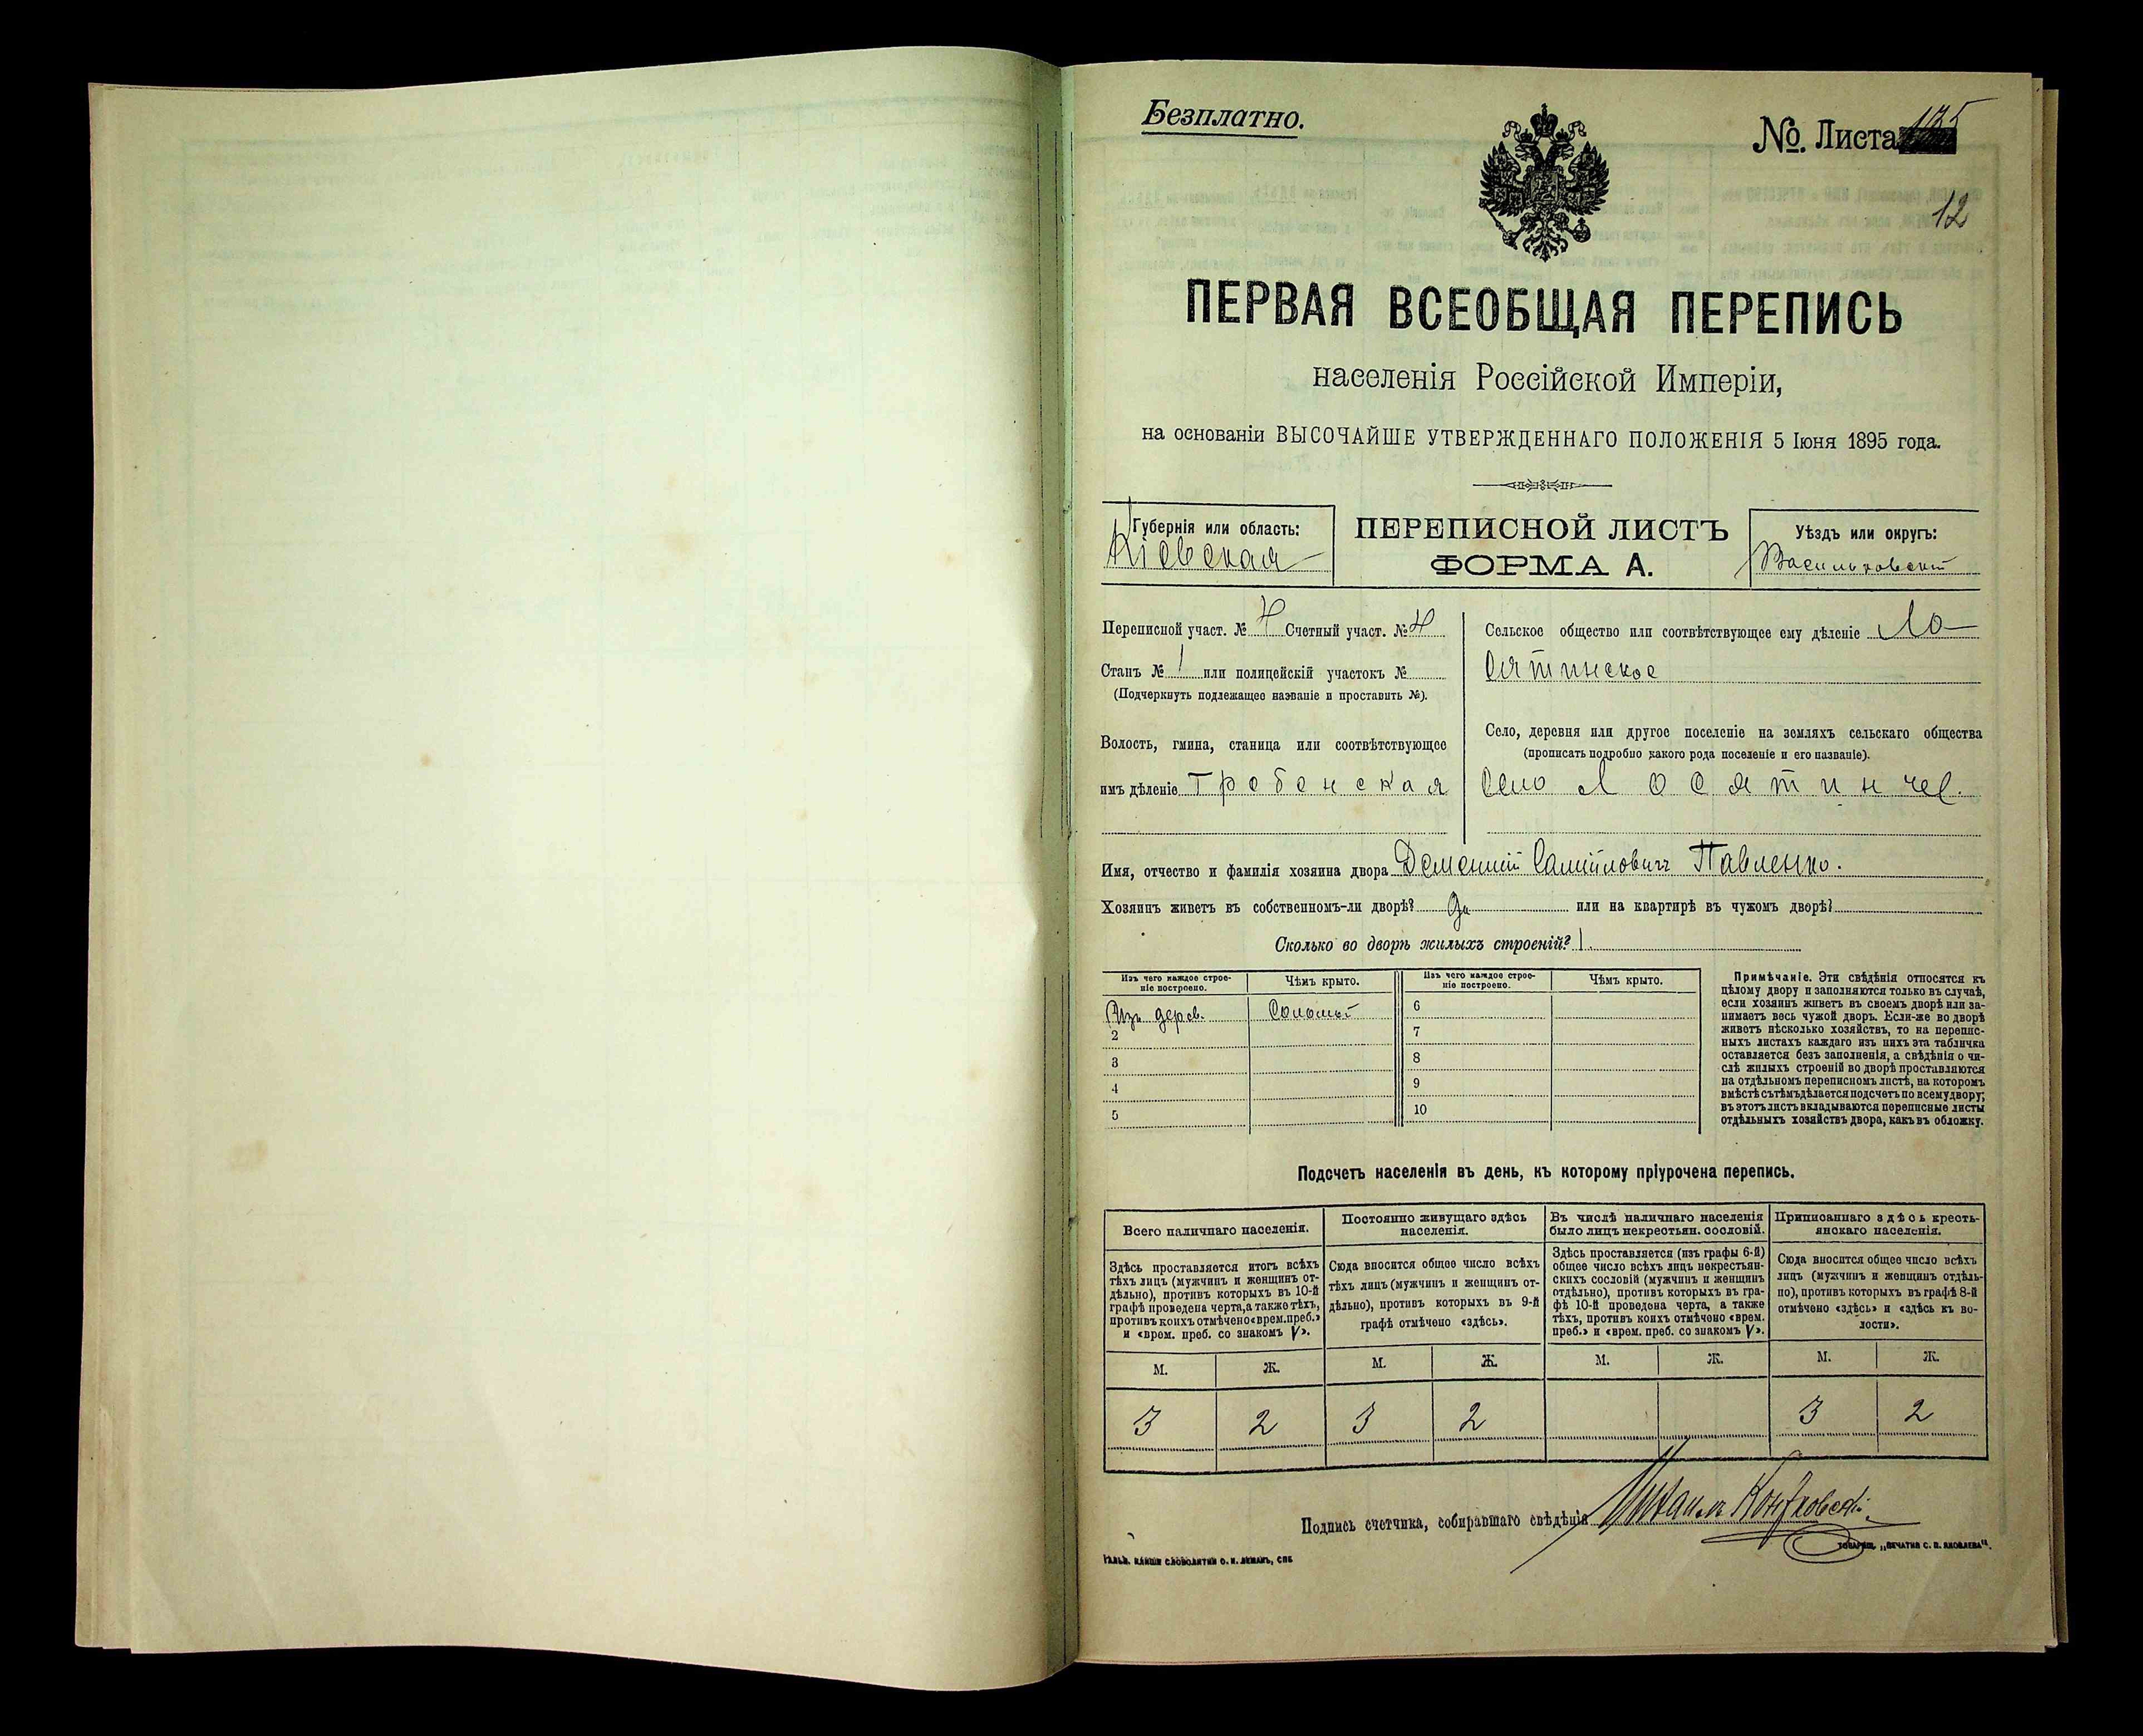 Безплатно.
№. Листа 135
12
ПЕРВАЯ ВСЕОБЩАЯ ПЕРЕПИСЬ
населенія Россійской Имперіи,
на основаніи ВЫСОЧАЙШЕ УТВЕРЖДЕННАГО ПОЛОЖЕНІЯ 5 Іюня 1895 года.
Губернія или область:
Кіевская
ПЕРЕПИСНОЙ ЛИСТЪ
ФОРМА А.
Уѣздъ или округъ:
Васильковскій
Переписной участ. № 4 Счетный участ. № 4
Станъ № 1 или полицейскій участокъ №
(Подчеркнуть подлежащее названіе и проставить №).
Волость, гмина, станица или соотвѣтствующее
имъ дѣленіе Гребенская
Сельское общество или соотвѣтствующее ему дѣленіе Ло-
сятинское
Село, деревня или другое поселеніе на земляхъ сельскаго общества
(прописать подробно какого рода поселеніе и его названіе).
Село Лосятин
Имя, отчество и фамилія хозяина двора Дементій Самійловичъ Павленко.
Хозяинъ живетъ въ собственномъ-ли дворѣ? Да или на квартирѣ въ чужомъ дворѣ?
Сколько во дворѣ жилыхъ строеній? 1.
Изъ чего каждое строе-
ніе построено.
Чѣмъ крыто.
Изъ чего каждое строе-
ніе построено.
Чѣмъ крыто.
Изъ дерев. Соломой
2
3
4
5
6
7
8
9
10
Примѣчаніе. Эти свѣдѣнія относятся къ
цѣлому двору и заполняются только въ случаѣ,
если хозяинъ живетъ въ своемъ дворѣ или за-
нимаетъ весь чужой дворъ. Если-же во дворѣ
живетъ нѣсколько хозяйствъ, то на перепис-
ныхъ листахъ каждаго изъ нихъ эта табличка
оставляется безъ заполненія, а свѣдѣнія о чи-
слѣ жилыхъ строеній во дворѣ проставляются
на отдѣльномъ переписномъ листѣ, на которомъ
вмѣстѣ съ тѣмъ дѣлается подсчетъ по всему двору;
въ этотъ листъ вкладываются переписные листы
отдѣльныхъ хозяйствъ двора, какъ въ обложку.
Подсчетъ населенія въ день, къ которому пріурочена перепись.
Всего наличнаго населенія.
Здѣсь проставляется итогъ всѣхъ
тѣхъ лицъ (мужчинъ и женщинъ от-
дѣльно), противъ которыхъ въ 10-й
графѣ проведена черта, а также тѣхъ,
противъ коихъ отмѣчено «врем. преб.»
и «врем. преб. со знакомъ V».
Постоянно живущаго здѣсь
населенія.
Сюда вносится общее число всѣхъ
тѣхъ лицъ (мужчинъ и женщинъ от-
дѣльно), противъ которыхъ въ 9-й
графѣ отмѣчено «здѣсь».
Въ числѣ наличнаго населенія
было лицъ некрестьян. сословій.
Здѣсь проставляется (изъ графы 6-й)
общее число всѣхъ лицъ некрестьян-
скихъ сословій (мужчинъ и женщинъ
отдѣльно), противъ которыхъ въ гра-
фѣ 10-й проведена черта, а также
тѣхъ, противъ коихъ отмѣчено «врем.
преб.» и «врем. преб. со знакомъ V».
Приписаннаго здѣсь кресть-
янскаго населенія.
Сюда вносится общее число всѣхъ
лицъ (мужчинъ и женщинъ отдѣль-
но), противъ которыхъ въ графѣ 8-й
отмѣчено «здѣсь» и «здѣсь къ во-
лости».
М. Ж. М. Ж. М. Ж. М. Ж.
3 2 3 2 3 2
Подпись счетчика, собиравшаго свѣдѣнія Михаилъ
СЛОВОЛИТНИ О. И. ЛЕМАНЪ, СПБ
ТОВАРИЩ. „ПЕЧАТНЯ С. П. ЯКОВЛЕВА“.